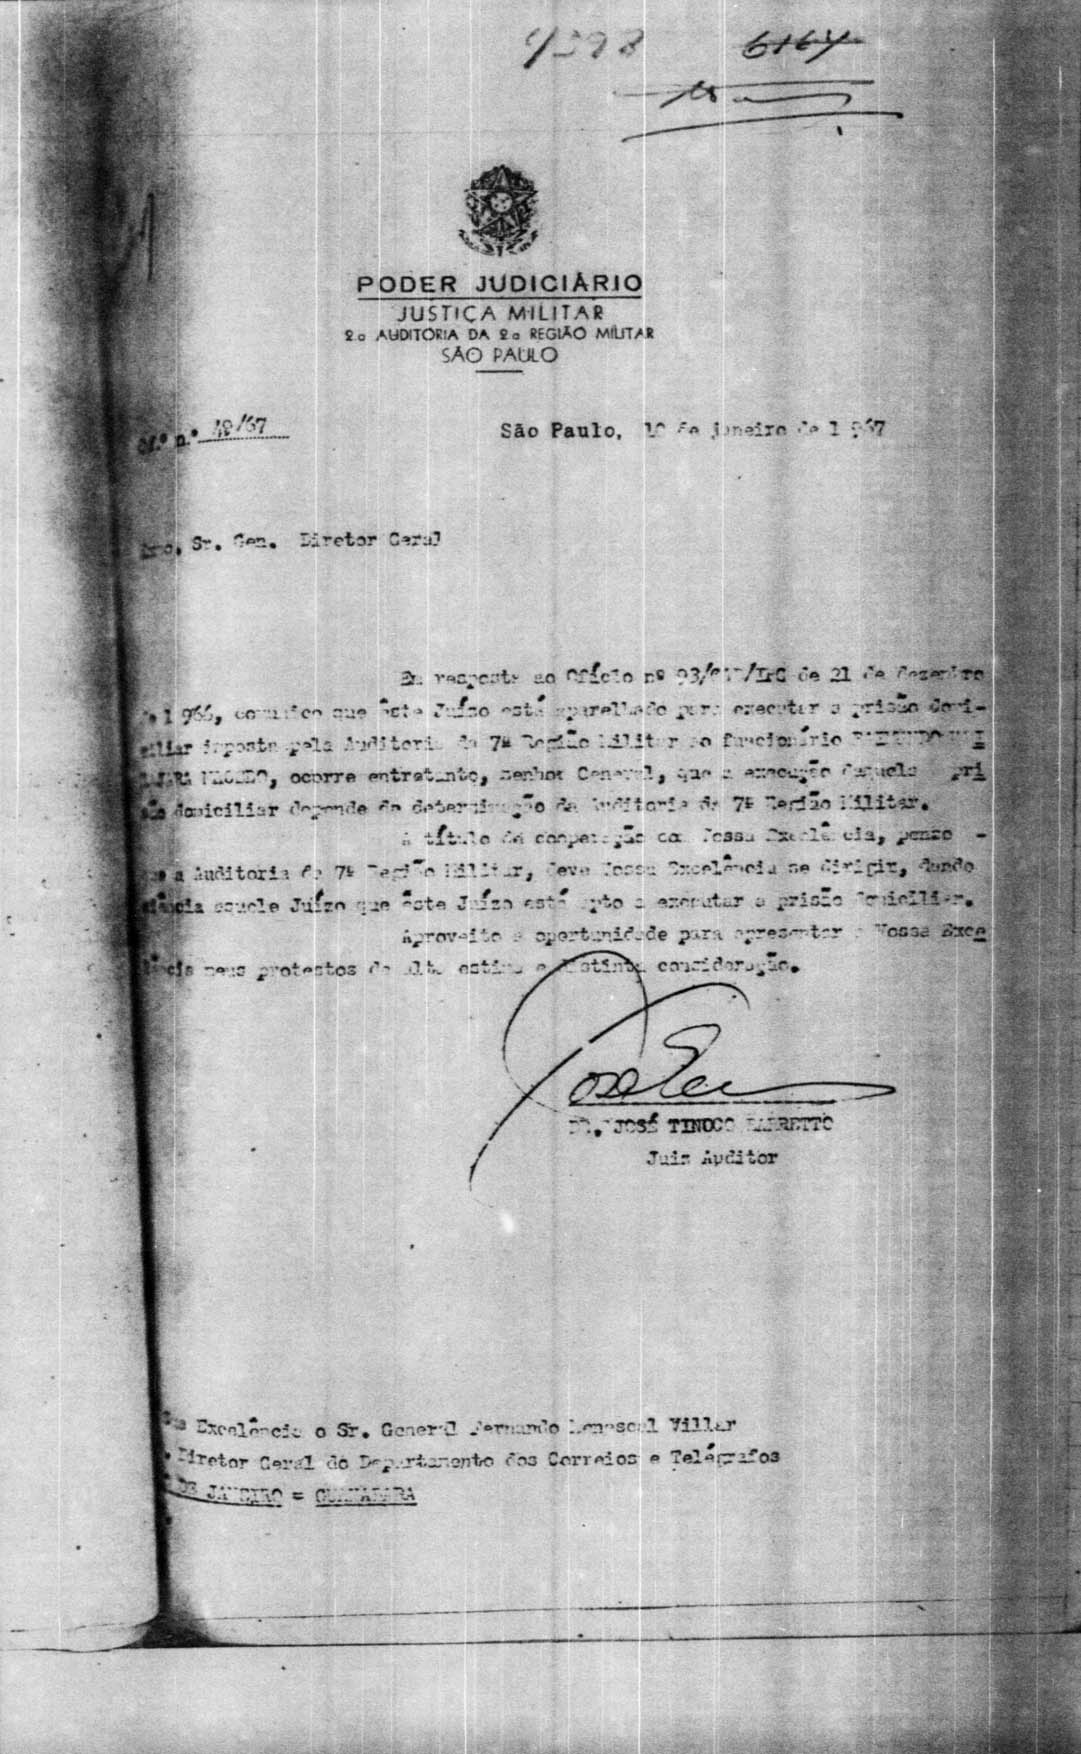 6164
PODER JUDICIÁRIO
JUSTIÇA MILITAR
2.a AUDITORIA DA 2.a REGIÃO MILITAR
SÃO PAULO
Of.º n.º 49/67
São Paulo, 10 de janeiro de 1 967
Exmo. Sr. Gen. Diretor Geral
Em resposta ao Ofício nº 93/ de 21 de dezembro
de 1 966, comunico que êste Juízo está aparelhado para executar a prisão domi-
ciliar imposta pela Auditoria da 7ª Região Militar ao funcionário RAIMUNDO
MACEDO, ocorre entretanto, senhor General, que a execução daquela pri
são domiciliar depende da determinação da Auditoria da 7ª Região Militar.
A título de cooperação com Vossa Excelência, penso -
que a Auditoria da 7ª Região Militar, deve Vossa Excelência se dirigir, dando
ciência aquele Juízo que êste Juízo está apto a executar a prisão domicilier.
Aproveito a oportunidade para apresentar a Vossa Exce
lência meus protestos de alta estima e distinta consideração.
DR. JOSÉ TINOCO BARRETTO
Juiz Auditor
Sua Excelência o Sr. General Fernando Menescal Villar
Diretor Geral do Departamento dos Correios e Telégrafos
DE JANEIRO = GUANABARA